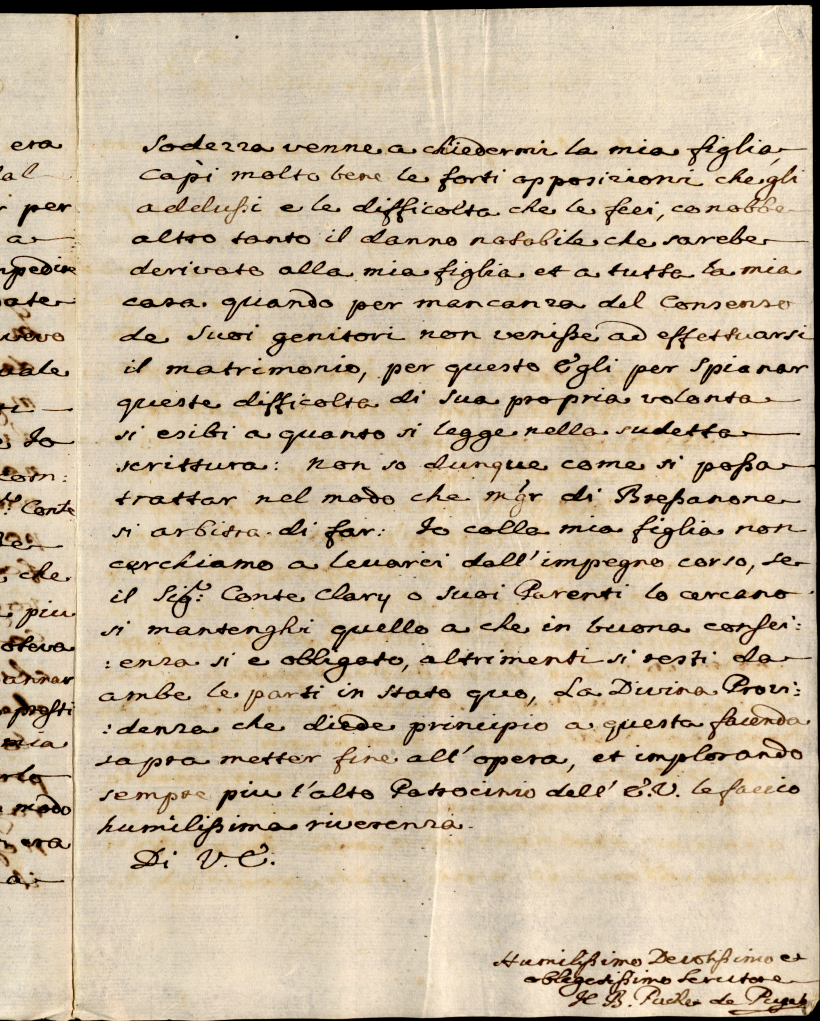 era
dal
per
a
mpedire
uovo
uale
Io
com:
Conte
che
piu
oteva
annar
modo
era
Sodezza venne a chiedermi la mia figlia,
capì molto bene le forti opposizioni che gli
addussi e le difficolta che le feci, conobbe
altro tanto il danno notabile che sarebe
derivato alla mia figlia et a tutta la mia
casa. quando per mancanza del Consenso
de Suoi genitori non venisse ad effettuarsi
il matrimonio, per questo Egli per spianar
queste difficolta di sua propria volonta
si esibi a quanto si legge nella sudetta
scrittura: non so dunque come si possa
trattar nel modo che mgr di Bressanone
si arbitra di far: Io colla mia figlia non
cerchiamo a levarci dall'impegno corso, se
il Sigr: Conte Clary o suoi Parenti lo cercano
si mantenghi quello a che in buona consci:
:enza si e obligato, altrimenti si resti da
ambe le parti in stato quo, La Divina Provi:
:denza che diede principio a questa facenda
sapra metter fine all'opera, et implorando
sempre piu l'alto Patrocinio dell'E.V. le faccio
humilissima riverenza.
Di V.E.
Humilissimo Devotissimo et
obligatissimo Servitore
B. de